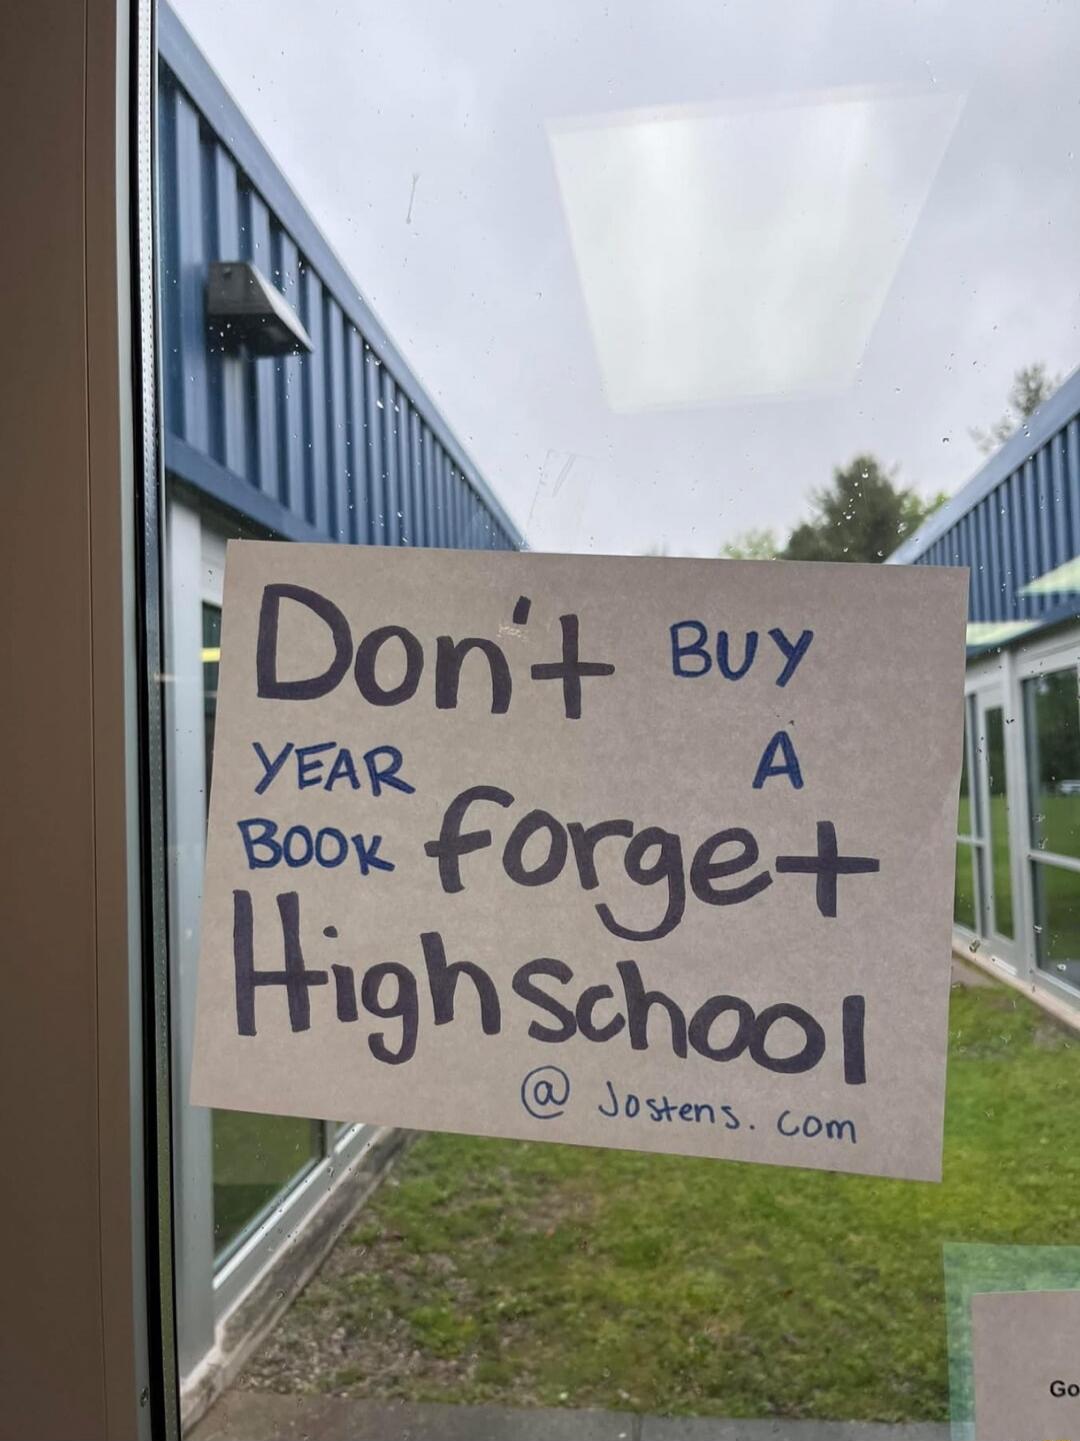 Don't BUY
YEAR A
BOOK forget
Highschool
@ Jostens.com
Go